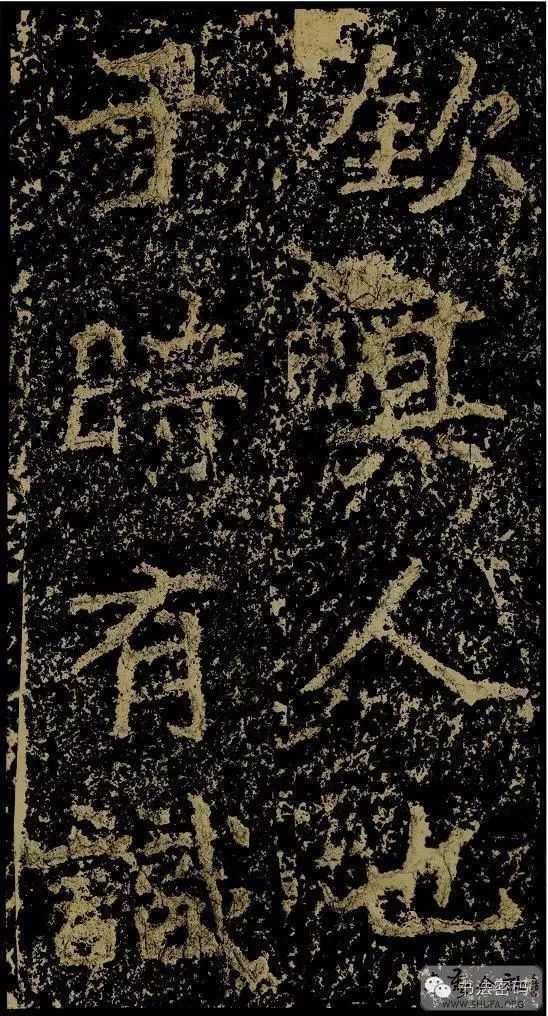 欽人也
于時有識
书法密码
WWW.SHUFA.ORG